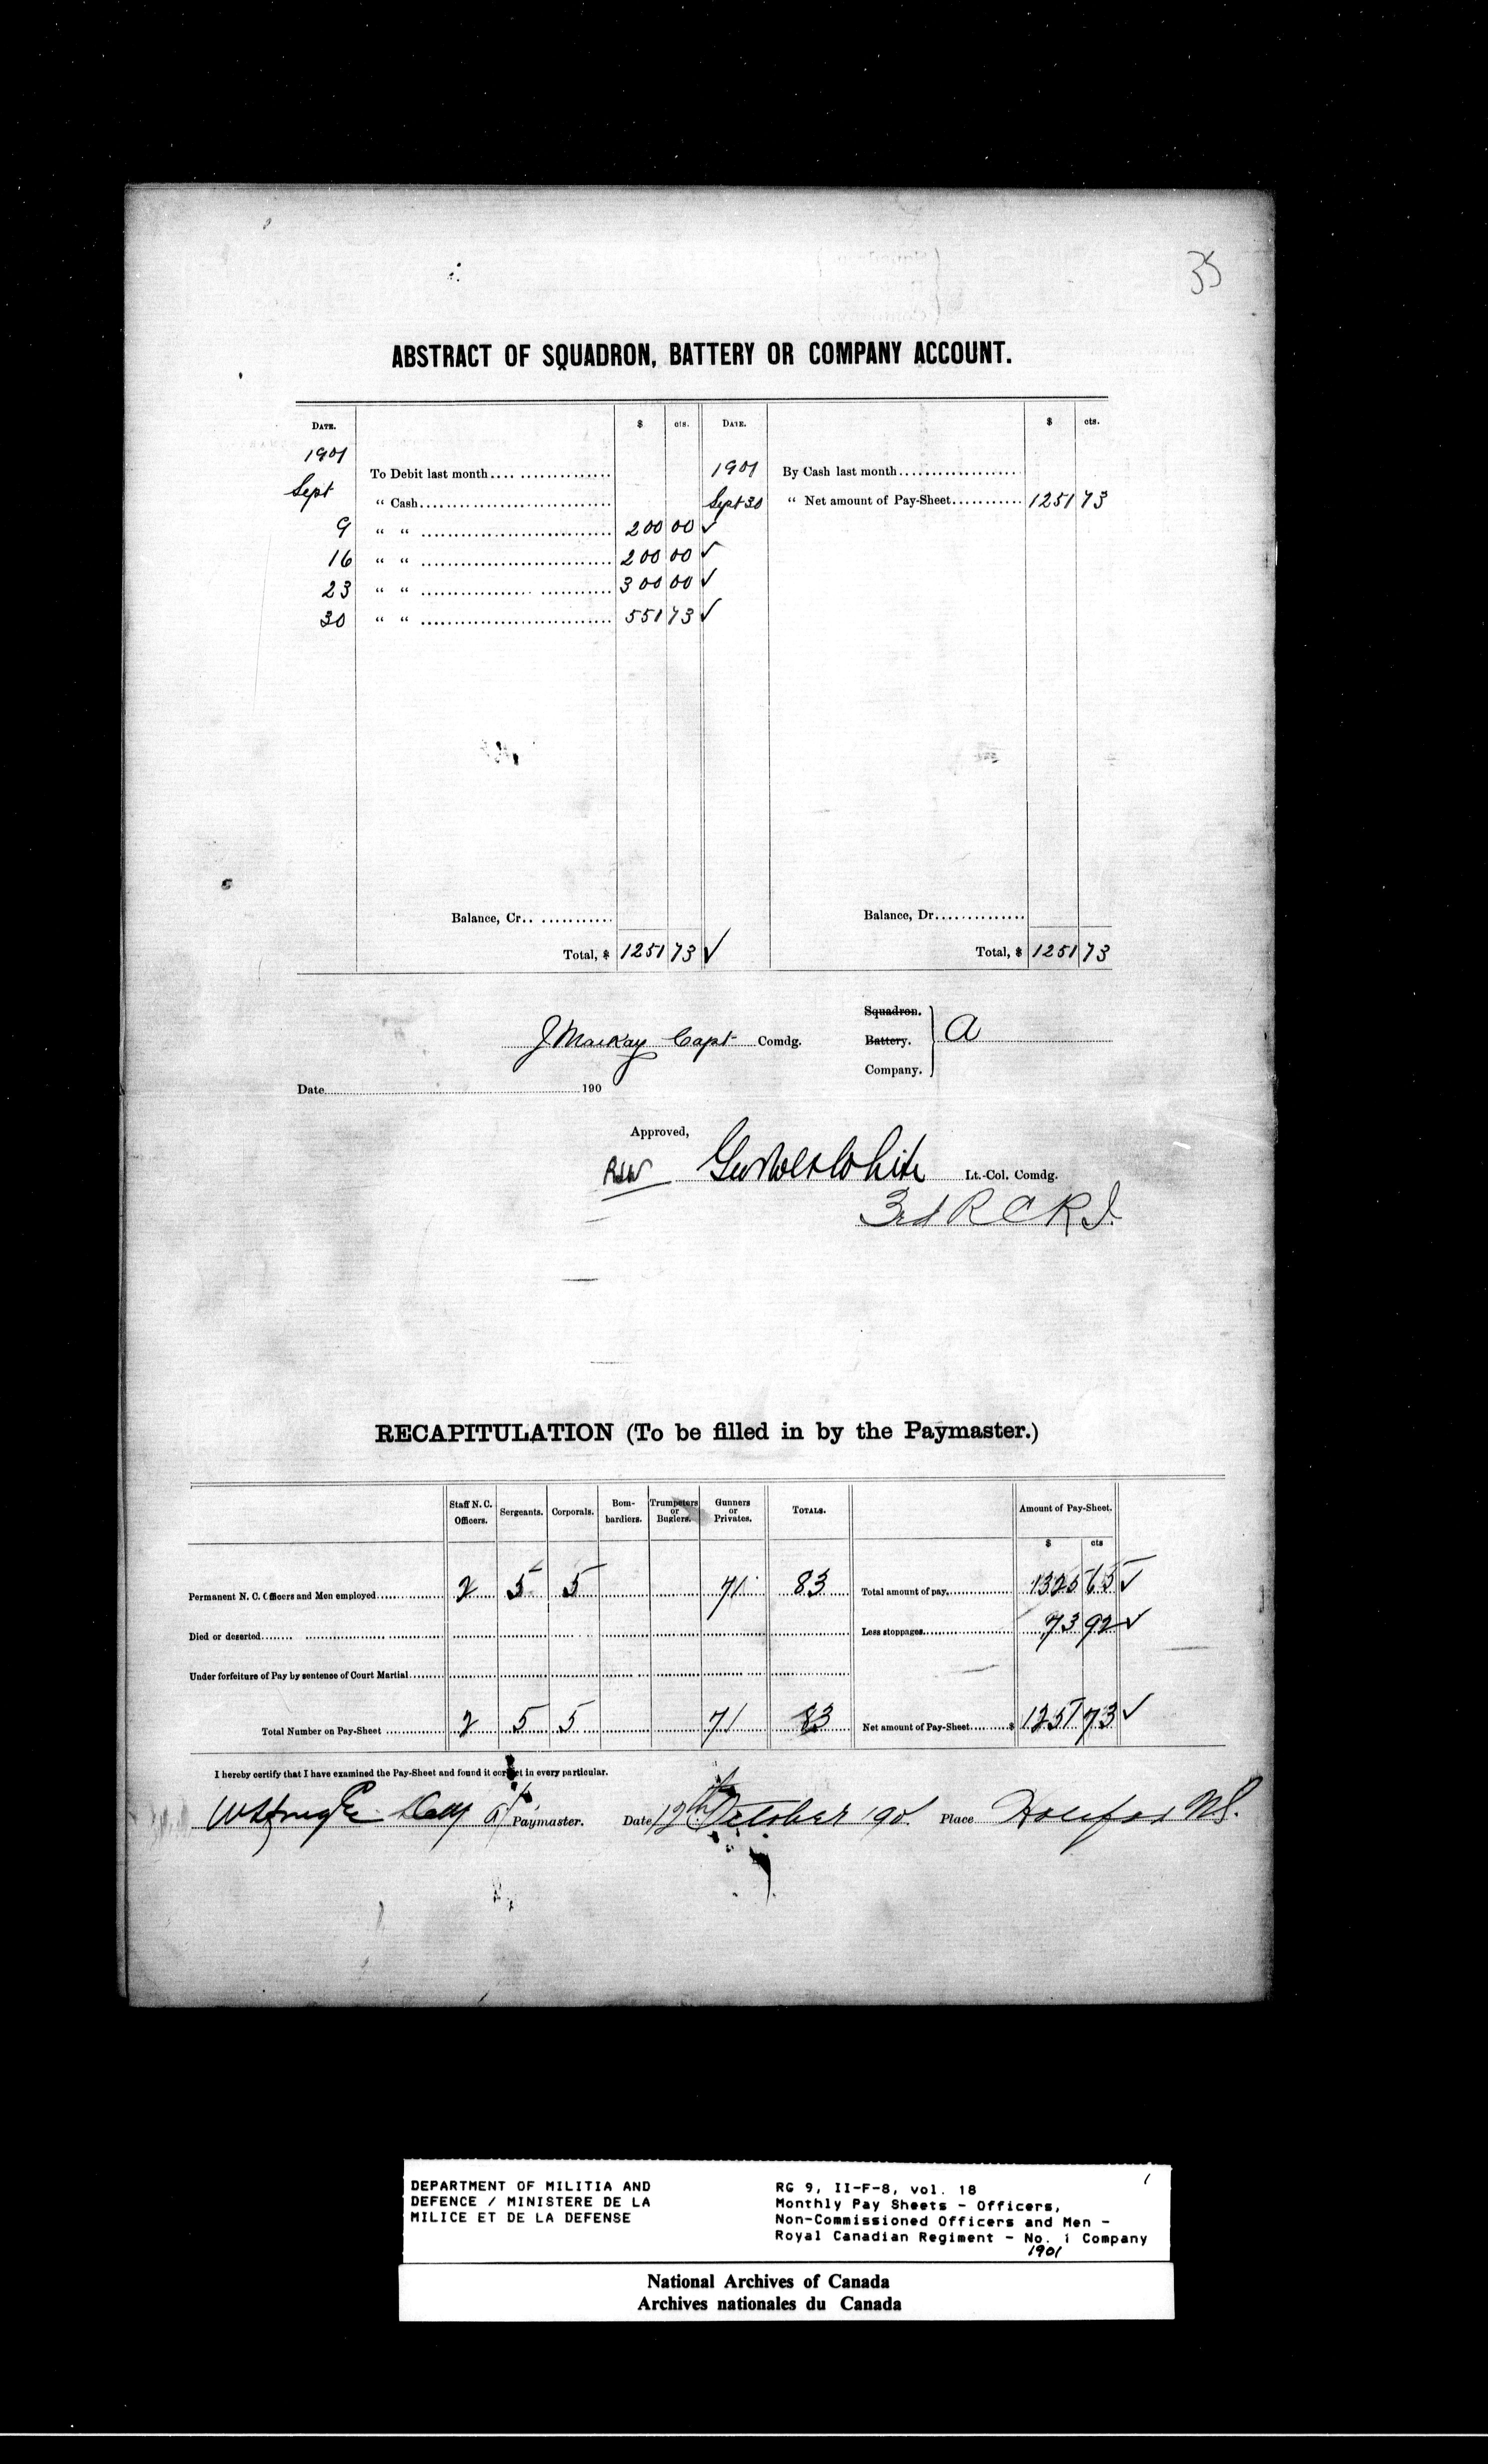 35
ABSTRACT OF SQUADRON, BATTERY OR COMPANY ACCOUNT.
DATE. $ cts. DATE. $ cts.
1901 To Debit last month 1901 By Cash last month
Sept " Cash Sept 30 " Net amount of Pay-Sheet 1251 73
9 " " 200 00 ✓
16 " " 200 00 ✓
23 " " 300 00 ✓
30 " " 551 73 ✓
Balance, Cr. Balance, Dr.
Total, $ 1251 73 ✓ Total, $ 1251 73
Squadron.
J Mackay Capt Comdg. Battery. A
Company.
Date 190
Approved,
Geo Wols White Lt.-Col. Comdg.
3rd R C R I.
RECAPITULATION (To be filled in by the Paymaster.)
Staff N. C. Officers. Sergeants. Corporals. Bom-bardiers. Trumpeters or Buglers. Gunners or Privates. TOTALS. Amount of Pay-Sheet.
$ cts
Permanent N. C. Officers and Men employed 2 5 5 71 83 Total amount of pay 1325 65 ✓
Died or deserted Less stoppages 73 92 ✓
Under forfeiture of Pay by sentence of Court Martial
Total Number on Pay-Sheet 2 5 5 71 83 Net amount of Pay-Sheet $ 1251 73 ✓
I hereby certify that I have examined the Pay-Sheet and found it correct in every particular.
Paymaster. Date 12th October 190 Place Halifax NS.
DEPARTMENT OF MILITIA AND
DEFENCE / MINISTERE DE LA
MILICE ET DE LA DEFENSE
RG 9, II-F-8, vol. 18
Monthly Pay Sheets - Officers,
Non-Commissioned Officers and Men -
Royal Canadian Regiment - No. 1 Company
1901
National Archives of Canada
Archives nationales du Canada